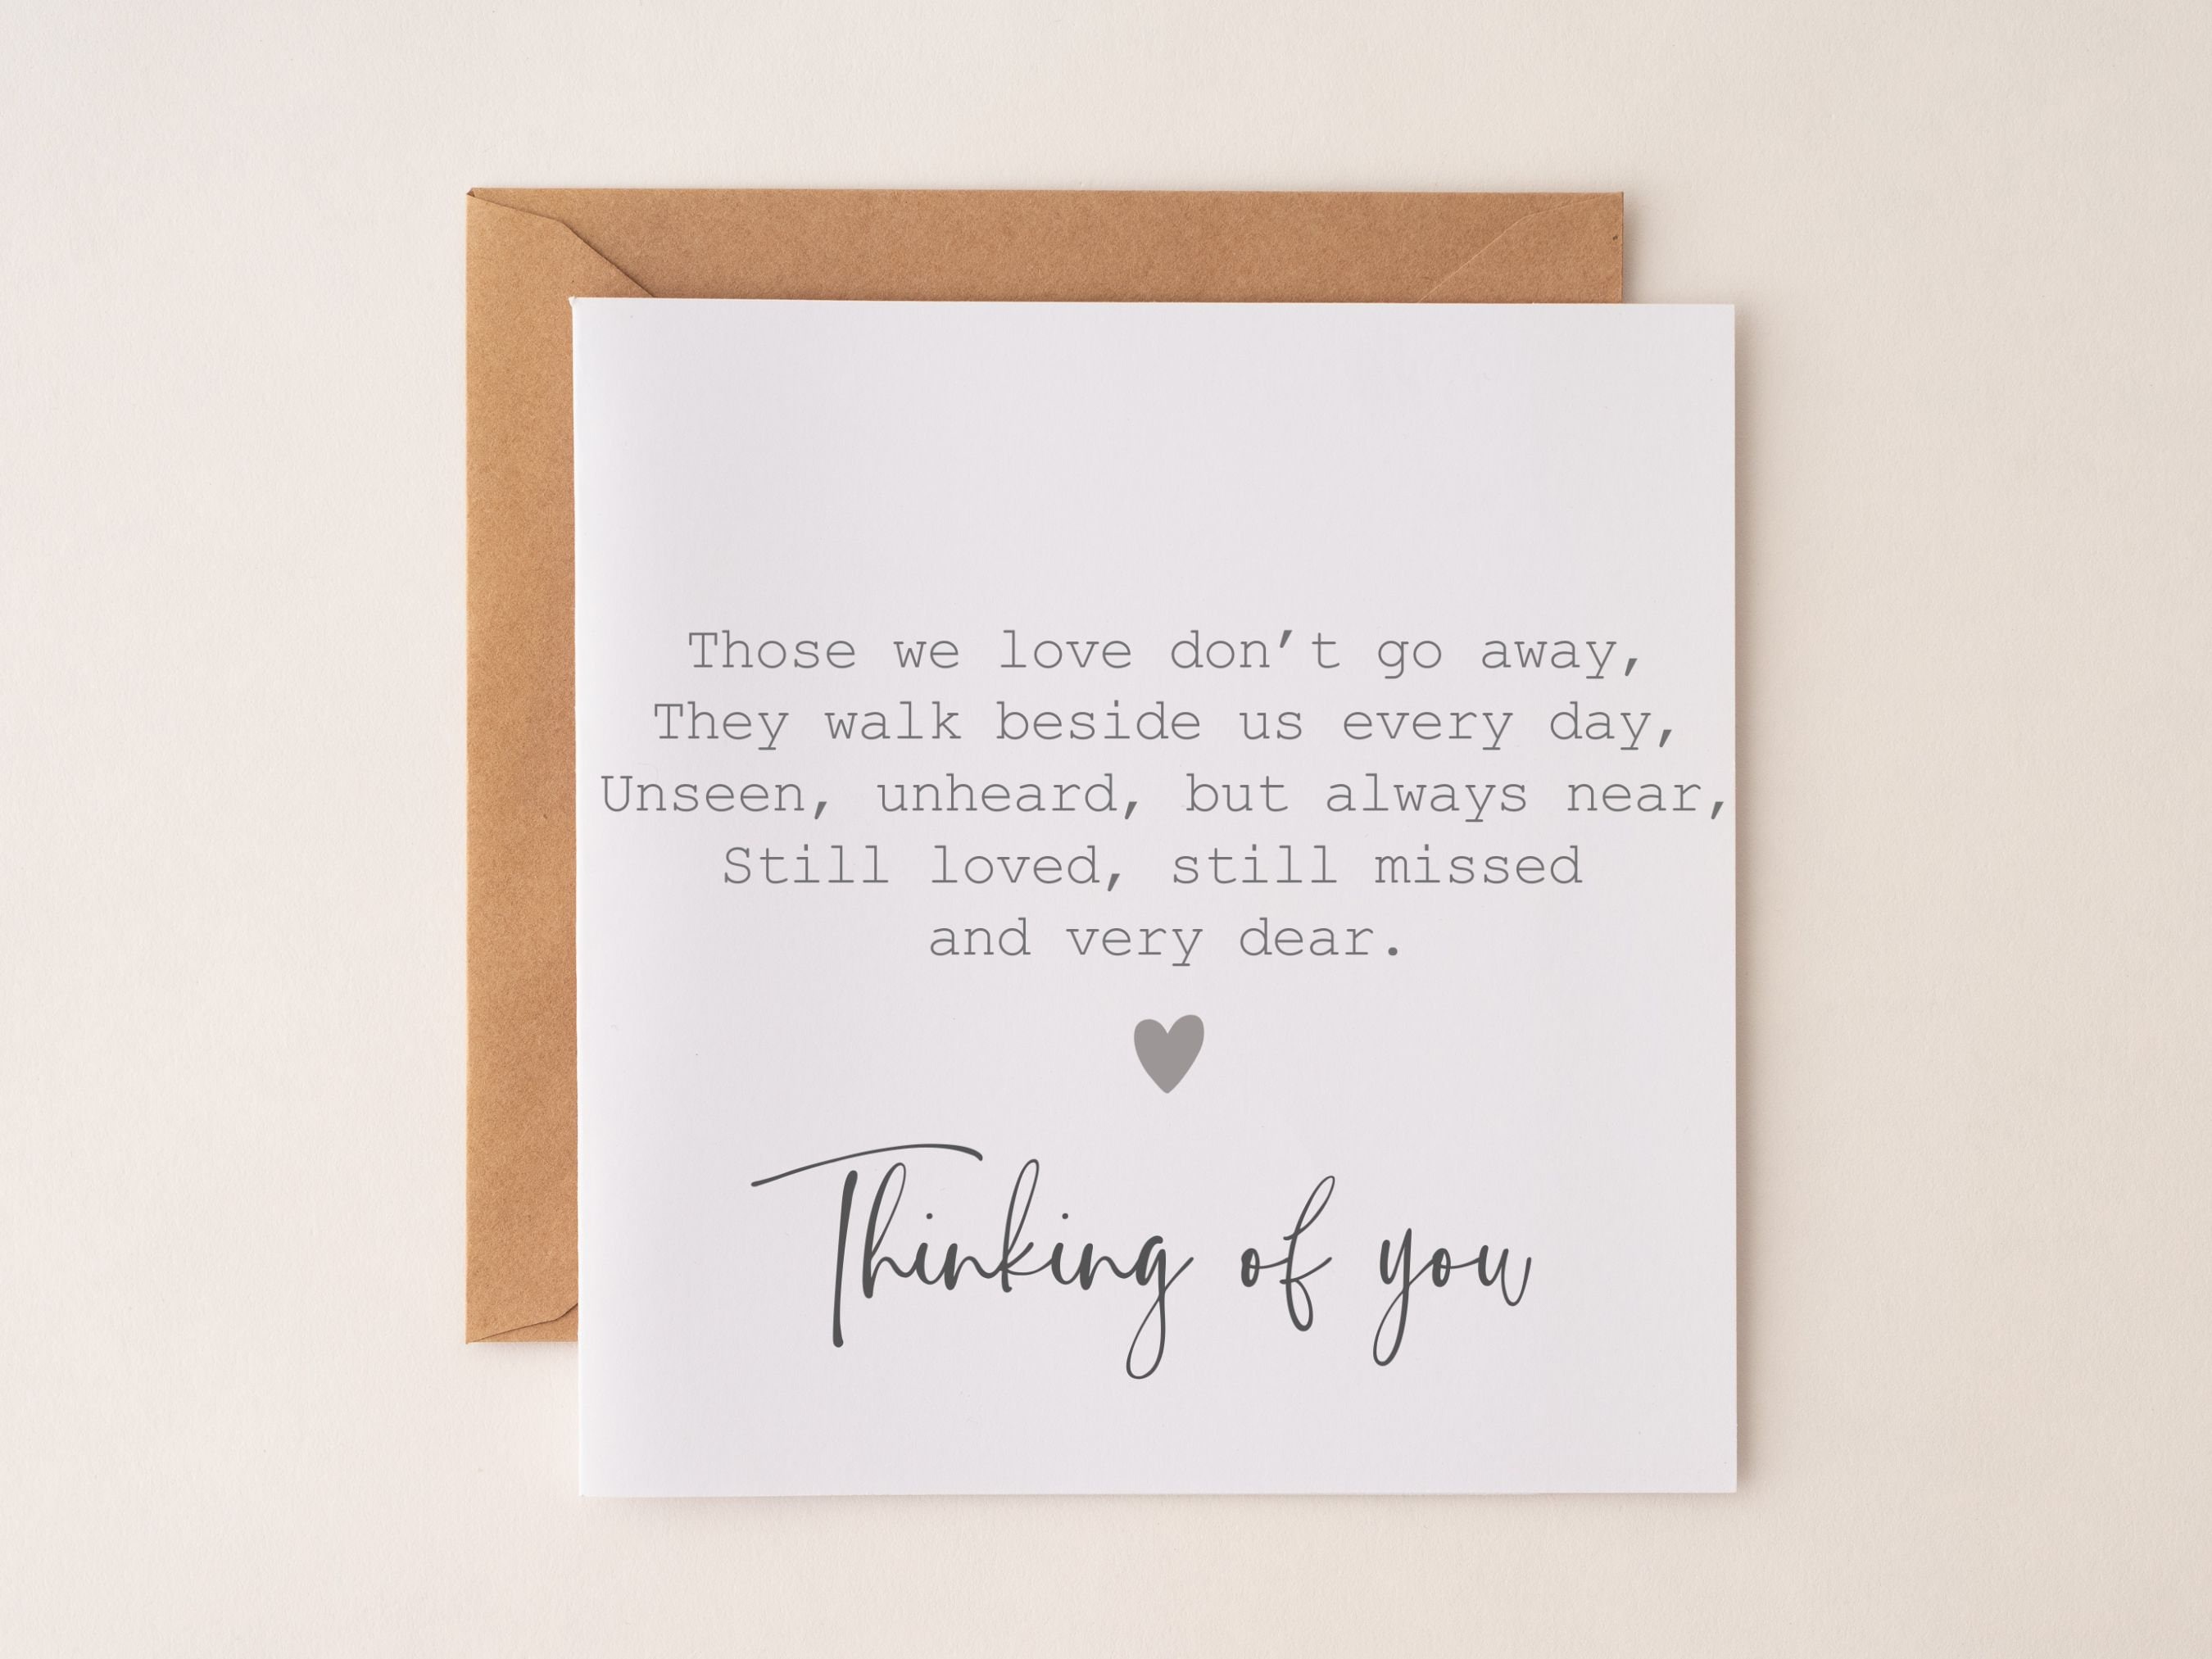 Those we love don’t go away,
They walk beside us every day,
Unseen, unheard, but always near,
Still loved, still missed
and very dear.
Thinking of you